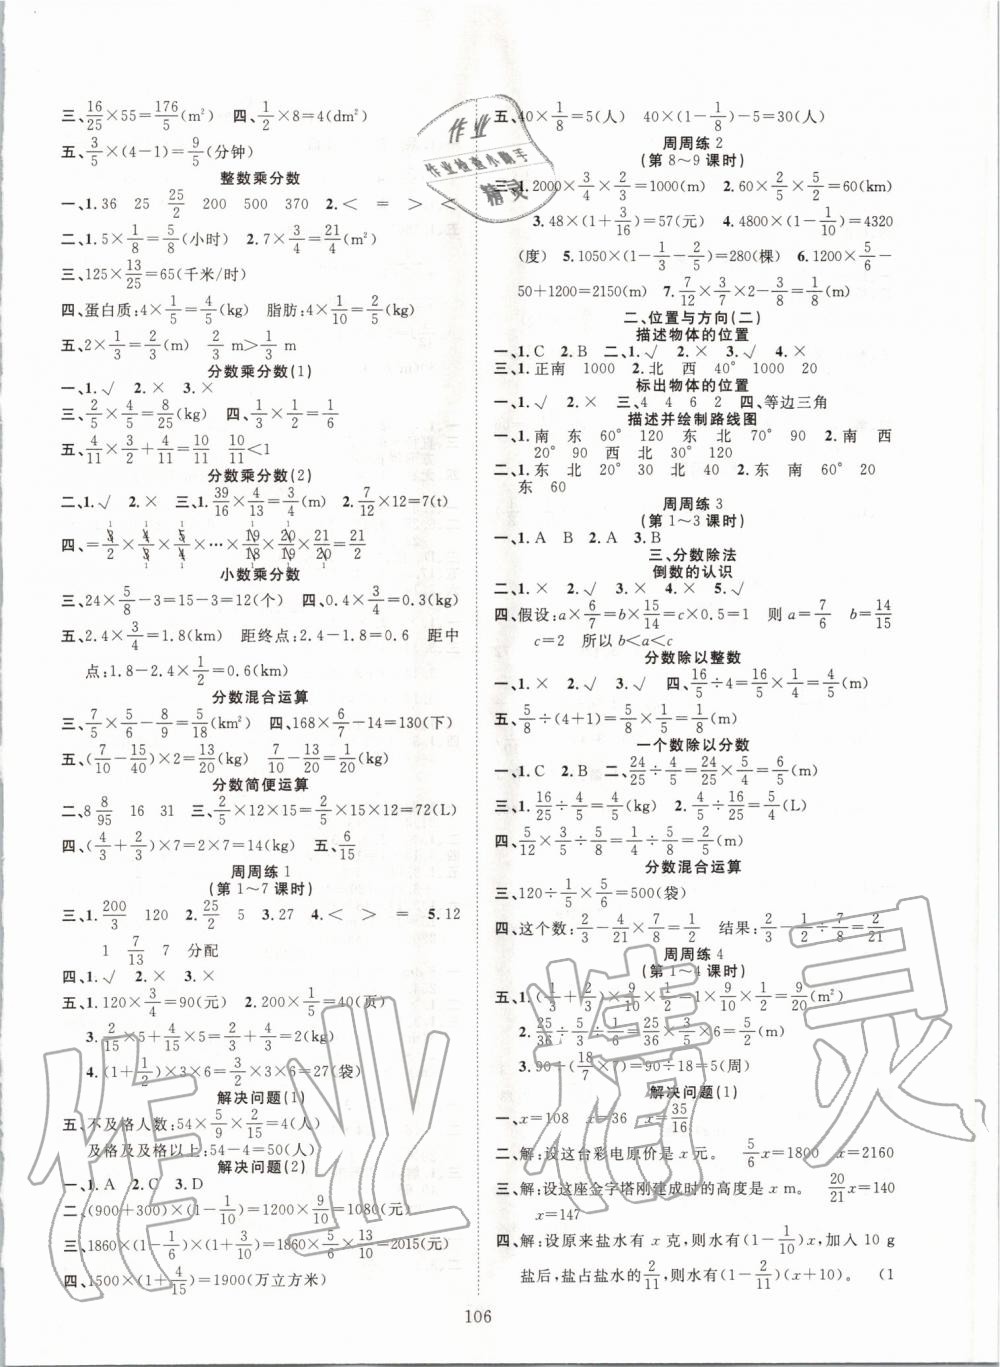 三、16/25×55=176/5(m²)　四、1/2×8=4(dm²)
五、3/5×(4-1)=9/5(分钟)
整数乘分数
一、1.36　25　25/2　200　500　370　2.<　=　>　<
二、1.5×1/8=5/8(小时)　2.7×3/4=21/4(m²)
三、125×13/25=65(千米/时)
四、蛋白质:4×1/5=4/5(kg)　脂肪:4×1/10=2/5(kg)
五、2×1/3=2/3(m)　2/3 m>1/3 m
分数乘分数(1)
一、1.√　2.×　3.×
三、2/5×4/5=8/25(kg)　四、1/3×1/2=1/6(kg)
五、4/11×3/2+4/11=10/11　10/11<1
分数乘分数(2)
二、1.√　2.×　三、1.39/16×4/13=3/4(m)　2.7/12×12=7(t)
四、=3/2×4/3×5/4×…×19/18×20/19×21/20=21/2
小数乘分数
三、24×5/8-3=15-3=12(个)　四、0.4×3/4=0.3(kg)
五、2.4×3/4=1.8(km)　距终点:2.4-1.8=0.6　距中
点:1.8-2.4×1/2=0.6(km)
分数混合运算
三、7/5×5/6-8/9=5/18(km²)　四、168×6/7-14=130(下)
五、(7/10-15/40)×2=13/20(kg)　7/10-13/20=1/20(kg)
分数简便运算
二、8 8/95　16　31　三、2/5×12×15=2/5×15×12=72(L)
四、(4/3+2/3)×7=2×7=14　五、6/15
周周练1
(第1~7课时)
三、1.200/3　120　2.25/2　5　3.27　4.<　>　=　5.12
1　7/13　7　分配
四、1.√　2.×　3.×
五、1.120×3/4=90(元)　2.200×1/5=40(页)
3.2/15×5+4/15×5=2/3+4/3=2(kg)
4.(1+1/2)×3×6=3/2×3×6=27(袋)
解决问题(1)
五、不及格人数:54×5/9×2/15=4(人)
及格及格以上:54-4=50(人)
解决问题(2)
一、1.A　2.C　3.D
二、(900+300)×(1-1/10)=1200×9/10=1080(元)
三、1860×(1-1/6)×(1+3/10)=1860×5/6×13/10=2015(元)
四、1500×(1+4/15)=1900(万立方米)
五、40×1/8=5(人)　40×(1-1/8)-5=30(人)
周周练2
(第8~9课时)
三、1.2000×3/4×2/3=1000(m)　2.60×2/5×5/2=60(km)
3.48×(1+3/16)=57(元)　4.4800×(1-1/10)=4320
(度)　5.1050×(1-1/3-2/5)=280(棵)　6.1200×5/6-
50+1200=2150(m)　7.7/12×3/7×2-3/8=1/8(m)
二、位置与方向(二)
描述物体的位置
一、1.C　2.B　二、1.√　2.×　3.√　4.×
三、1.正南　1000　2.北　西　40°　1000　20
标出物体的位置
一、1.√　2.×　三、4　4　6　2　四、等边三角
描述并绘制路线图
一、1.南　东　60°　120　东　北　70°　90　2.南　西
20°　90　西　北　30°　120
二、1.东　北　20　西　北　2.东　南　60°　20
东　60
周周练3
(第1~3课时)
一、1.A　B　2.A　3.B
三、分数除法
倒数的认识
二、1.×　2.√　3.×　4.×　5.√
四、假设:a×6/7=b×15/14=c×0.5=1　则a=7/6　b=14/15
c=2　所以b<a<c
分数除以整数
一、1.×　2.√　3.√　四、16/5÷4=16/5×1/4=4/5(m)
五、5/8÷(4+1)=5/8×1/5=1/8(m)
一个数除以分数
一、1.C　2.B　二、24/25÷4/5=24/25×5/4=6/5(m)
三、1.16/25÷4/5=4/5(kg)　2.4/5÷2/3=6/5(L)
四、5/12×3/2=5/8　1/4÷5/8=1/4×8/5=2/5(m)
分数混合运算
三、120÷1/5×5/6=500(袋)
四、这个数:2/3-4/21×7/8=1/2　结果:2/3-1/2÷7/8=2/21
周周练4
(第1~4课时)
五、1.(1/3+2/3)×9/10×1/2=1×9/10×1/2=9/20(m²)
2.25/36÷5/6÷1/6=25/36×6/5×6=5(m)
3.90÷(18/7×7)=90÷18=5(周)
解决问题(1)
一、x=108　x=36　x=35/16
二、解:设这台彩电原价是x元。　5/6x=1800　x=2160
三、解:设这座金字塔刚建成时的高度是x m。　20/21x=140
x=147
四、解:设原来盐水有x克,则水有(1-1/10)x,加入10 g
盐后,盐占盐水的2/11,则水有(1-2/11)(x+10)。　(1
106
作业
作业检查小助手
精灵
作业精灵